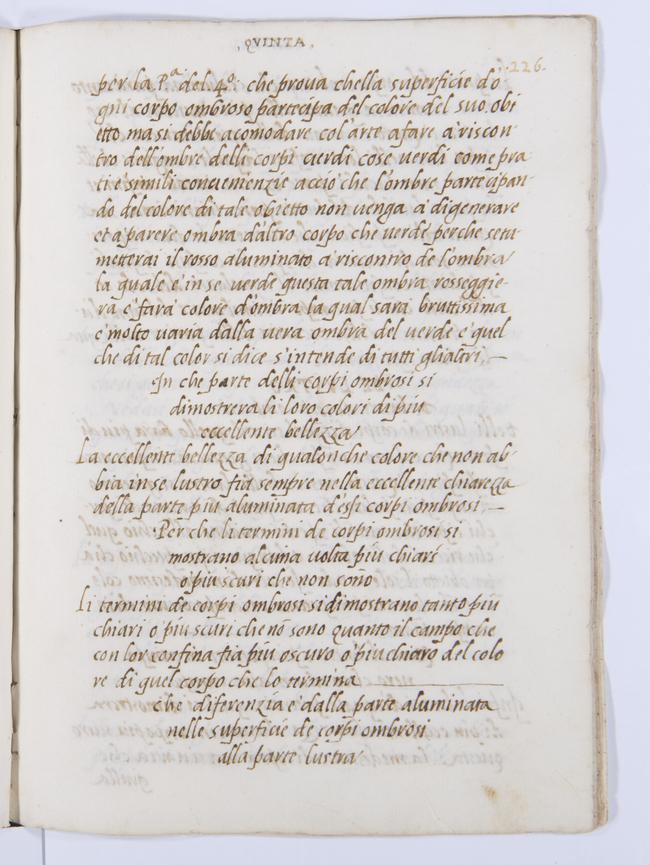 ,QVINTA,
.226.
per la P.a del 4.o: che prova chella superficie do
gni corpo ombroso partecipa del colore del suo obi
etto ma si debbe acomodare col'arte a fare a' riscon
tro dell'ombre delli corpi verdi cose verdi come pra
ti e' simili convenienzie acciò che l'ombre partecipan
do del colore di tale obietto non venga a' digenerare
et a' parere ombra d'altro corpo che verde perche setu
metterai il rosso aluminato a' riscontro de l'ombra
la quale è in se verde questa tale ombra rosseggie-
rà e' farà colore d'ombra la qual sarà bruttissima
e' molto varia dalla vera ombra del verde e' quel
che di tal color si dice s'intende di tutti gli altri. —
In che parte delli corpi ombrosi si
dimostrera li loro colori di piu
eccellente bellezza
La eccellente bellezza di qualonche colore che non ab-
bia in se lustro fia sempre nella eccellente chiarezza
della parte piu aluminata d'essi corpi ombrosi. —
Per che li termini de corpi ombrosi si
mostrano alcuna volta piu chiari
o' piu scuri che non sono
Li termini de corpi ombrosi si dimostrano tanto piu
chiari o' piu scuri che nō sono quanto il campo che
con lor confina fia piu oscuro o' piu chiaro del colo
re di quel corpo che lo termina
che diferenzia è dalla parte aluminata
nelle superficie de corpi ombrosi
alla parte lustra